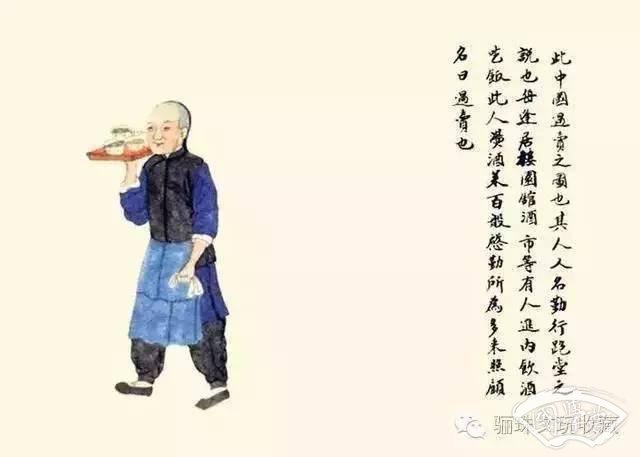 此中國過賣之圖也其人人名勤行跑堂之
說也每逢居樓園館酒市等有人進內飲酒
吃飯此人燙酒菜百般慇勤所爲多來照顧
名曰過賣也
骊珠文玩收藏